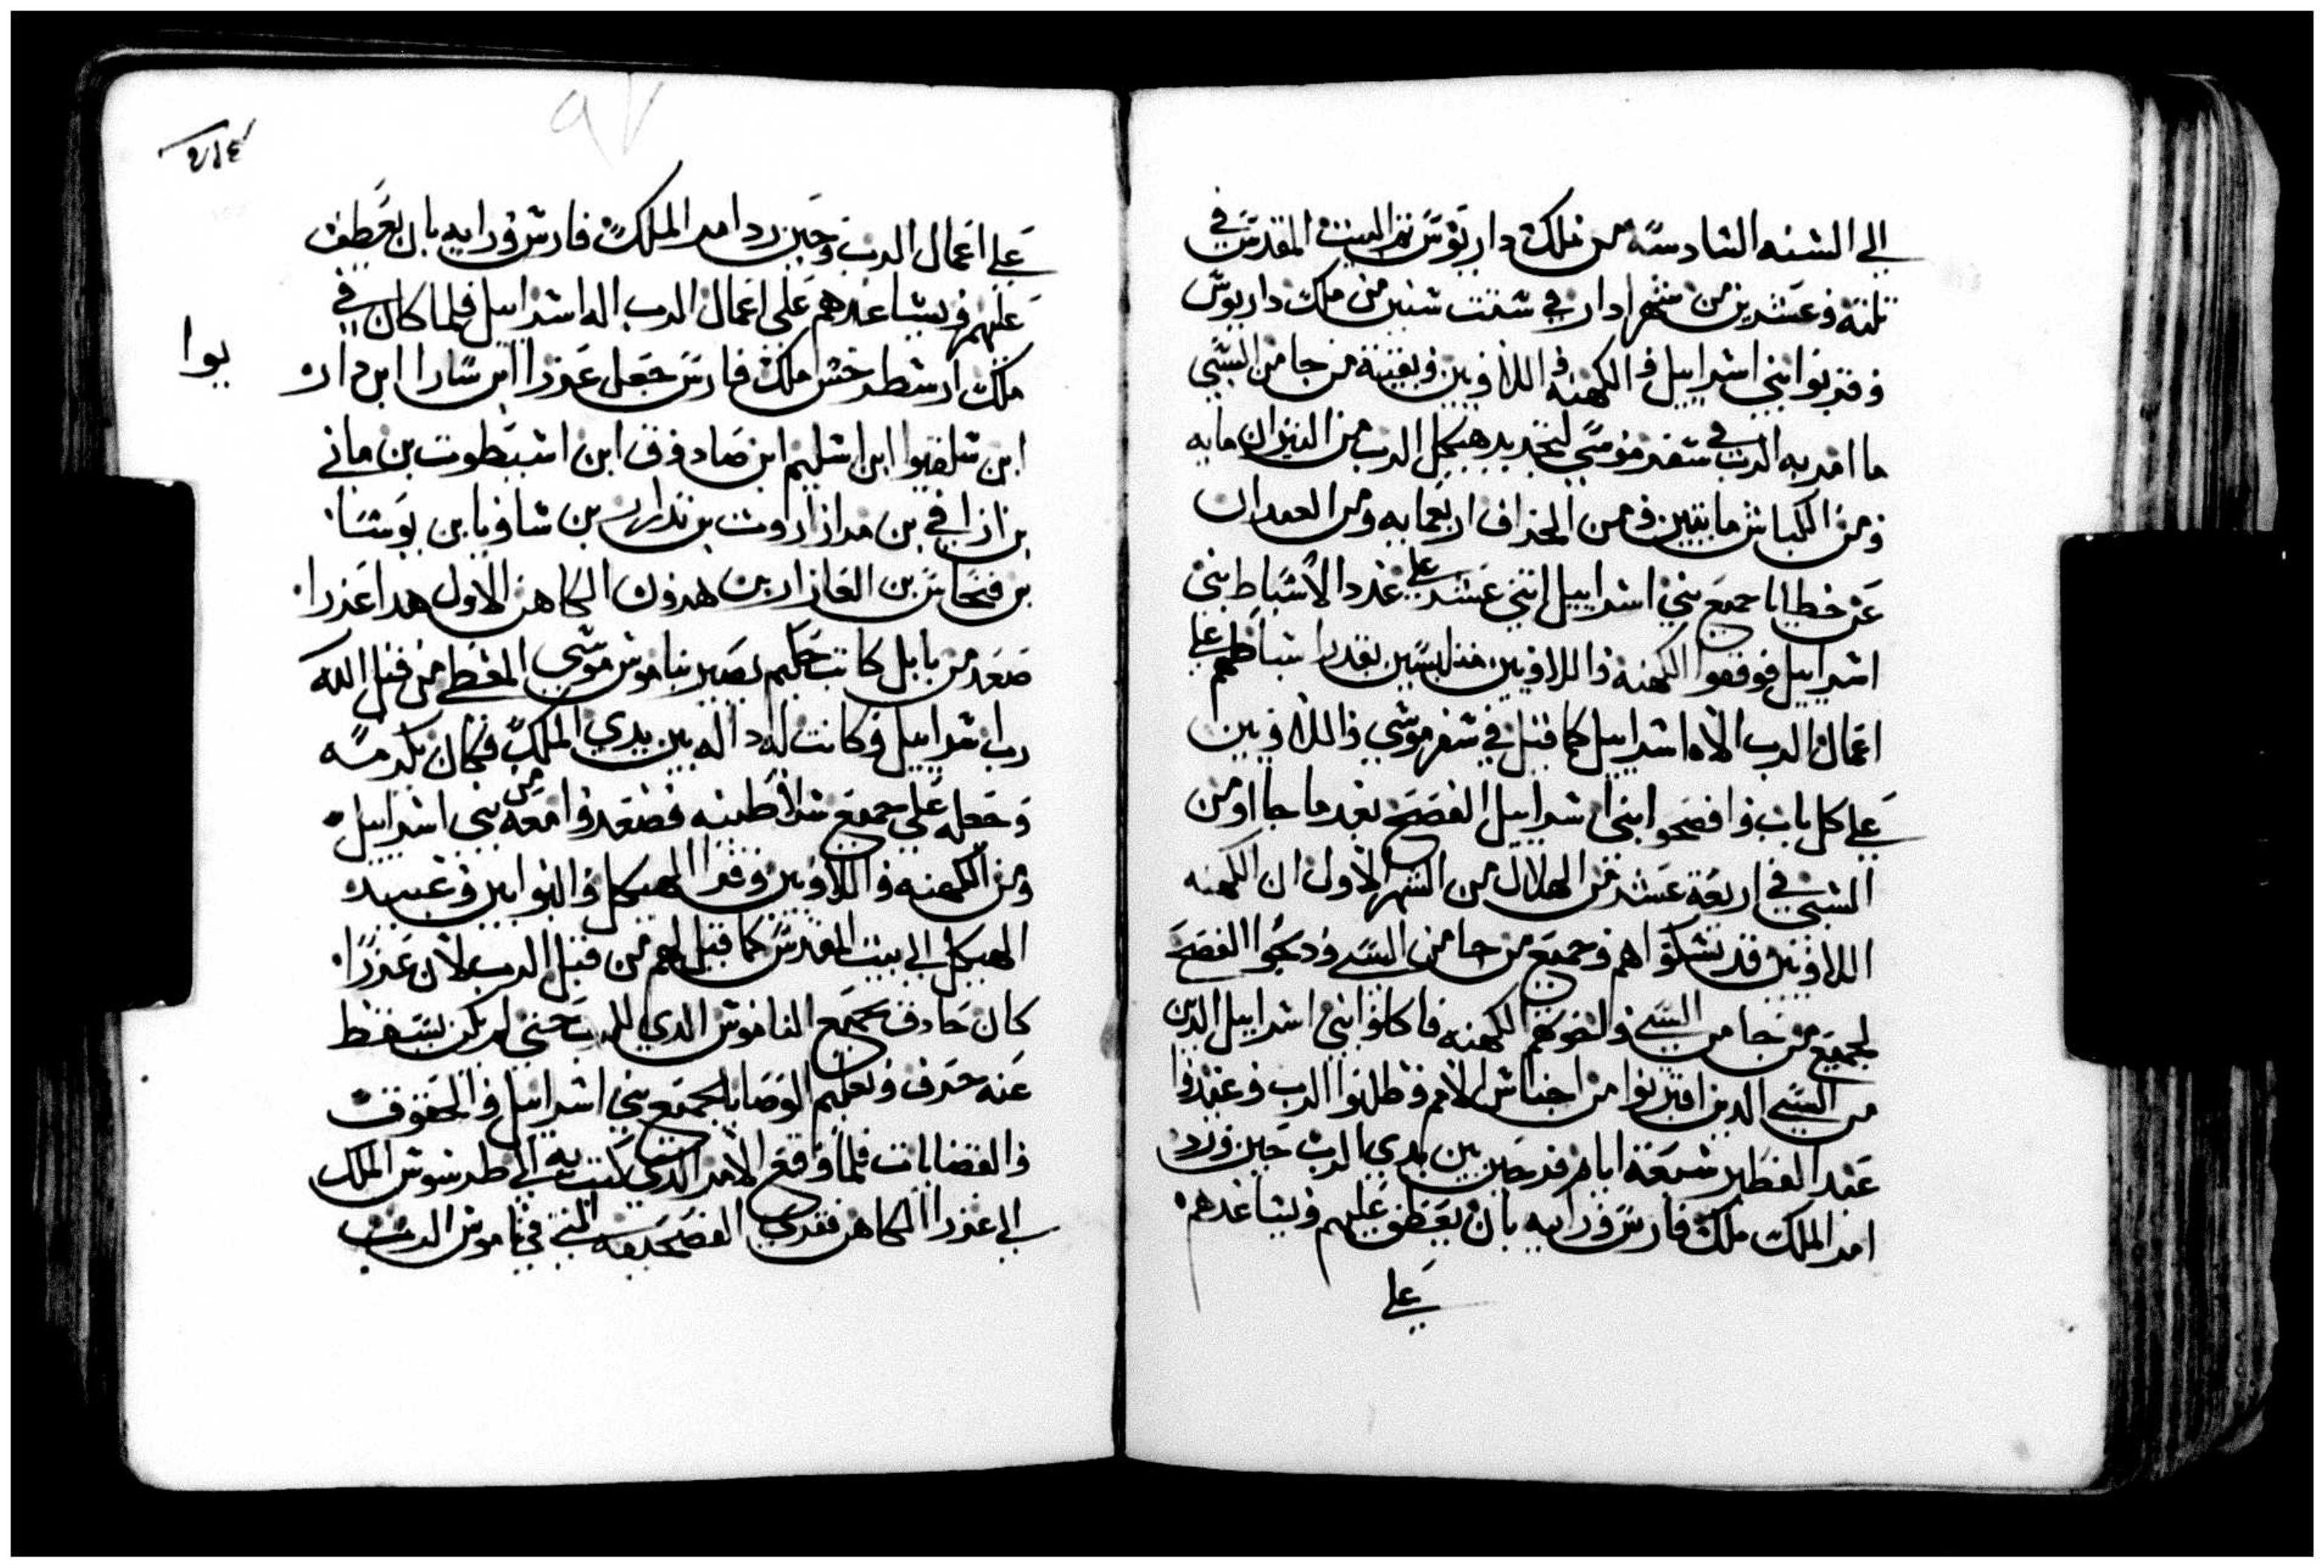 الي السنه السادسه من ملك داريوس تم البيت المقدس في
تلته وعشرين من شهر ادار في ستت سنين من ملك داريوس
وقربوا بني اسراييل والكهنه واللاويين وبقيية من جا من السبي
ما امر به الرب في سفر موسي لتجديد هيكل الرب من التيران مايه
ومن الكباش مايتيين ومن الخراف اربعمايه ومن العمدان
عن خطايا جميع بني اسراييل اتني عشر علي عدد الاسباط بني
اسراييل فوقفوا الكهنه واللاويين متلبسين بقدر اسباطهم علي
اعمال الرب الاه اسراييل كما قيل في سفر موسي واللاويين
علي كل باب وافصحوا بني اسراييل الفصح بعد ما جااو من
السبي في اربعة عشر من الهلال من الشهر الاول ان الكهنه
اللاويين قد نسكوا هم وجميع من جا من السبي ودبحوا الفصح
لجميع من جا من السبي ولاخوتهم الكهنه فاكلوا بني اسراييل الدين
من السبي الدين اقتربوا من اجناس الامم وطلبوا الرب وعيدوا
عيد الفطير سبعة ايام فرحين بين يدي الرب حين ورد
امر الملك ملك فارس ورايه بان يعطف عليهم ويساعدهم
علي
٢١٤
٩٧
علي اعمال الرب وحين رد امر الملك فارس ورايه بان يعطف
عليهم ويساعدهم علي اعمال الرب اله اسراييل فلما كان في
ملك ارسطرخس ملك فارس جعل عزرا ابن سارا ابن
يوا
ابن شلقيوا ابن اشليم ابن صادوق ابن اشيطوت بن ماني
بن ازافي بن مرازاروت بن بن شاويا بن بوسا
بن فنحاس بن العازار بن هرون الكاهن الاول هدا عزرا
صعد من بابل كاتب حكيم بصير بناموس موسي المعطي من قبل الله
رب اسراييل وكانت له داله بين يدي الملك فكان يكرمه
وجعله علي جميع سلاطينه فصعدوا معه من بني اسراييل
ومن الكهنه واللاويين وقرا الهيكل والبوابين وعبيد
الهيكل الي بيت المقدس كما قيل لهم من قبل الرب لان عزرا
كان حادق بجميع الناموس الدي للرب حتي لم يكن يسقط
عنه حرف وتعليم الوصايا لجميع بني اسراييل والحقوق
والقضايات فلما وقع الامر الدي كتب به الي طرسوس الملك
الي عزرا الكاهن في ناموس الرب